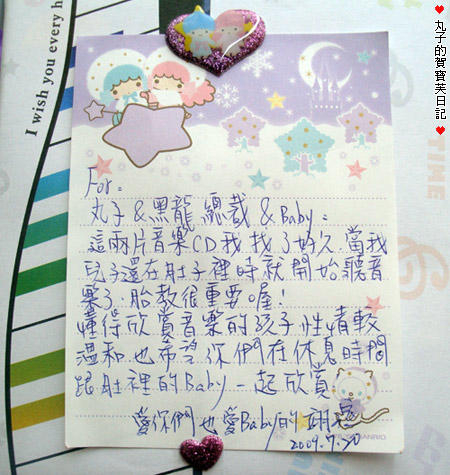 I wish you every h
♥丸子的賀寶芙日記♥
TIME
For：
丸子 & 黑龍 總裁 & Baby：
這兩片音樂CD我找了好久．當我
兒子還在肚子裡時就開始聽音
樂了．胎教很重要喔！
懂得欣賞音樂的孩子性情較
溫和．也希望你們在休息時間
跟肚裡的Baby一起欣賞
愛你們也愛Baby的
2009.7.30
SANRIO